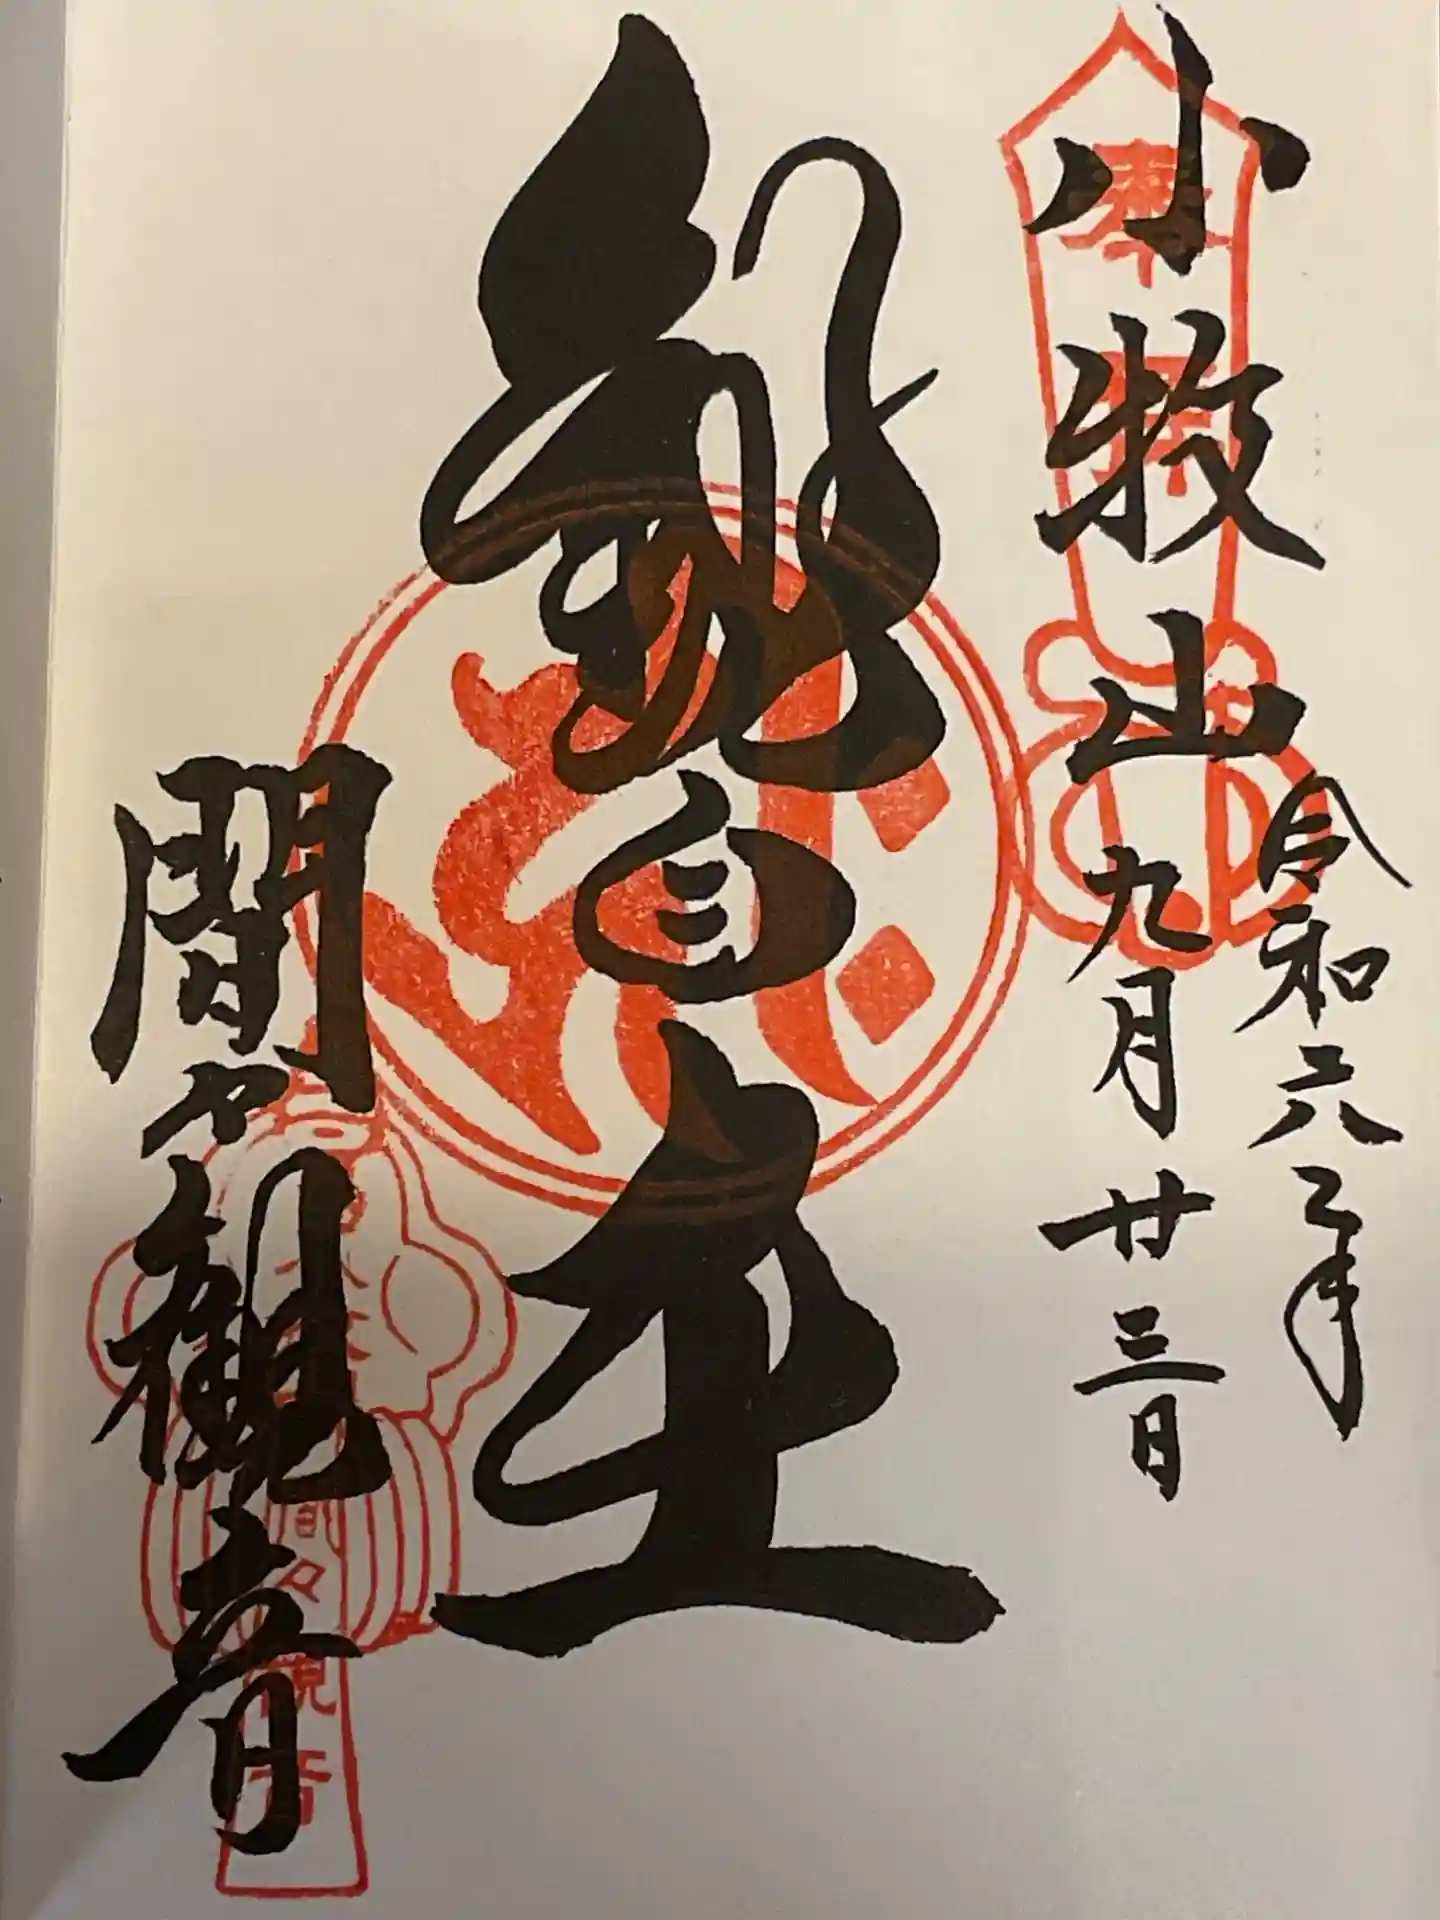 小牧山
令和六年
九月廿三日
観自在
間々観音
奉拝
間々観音